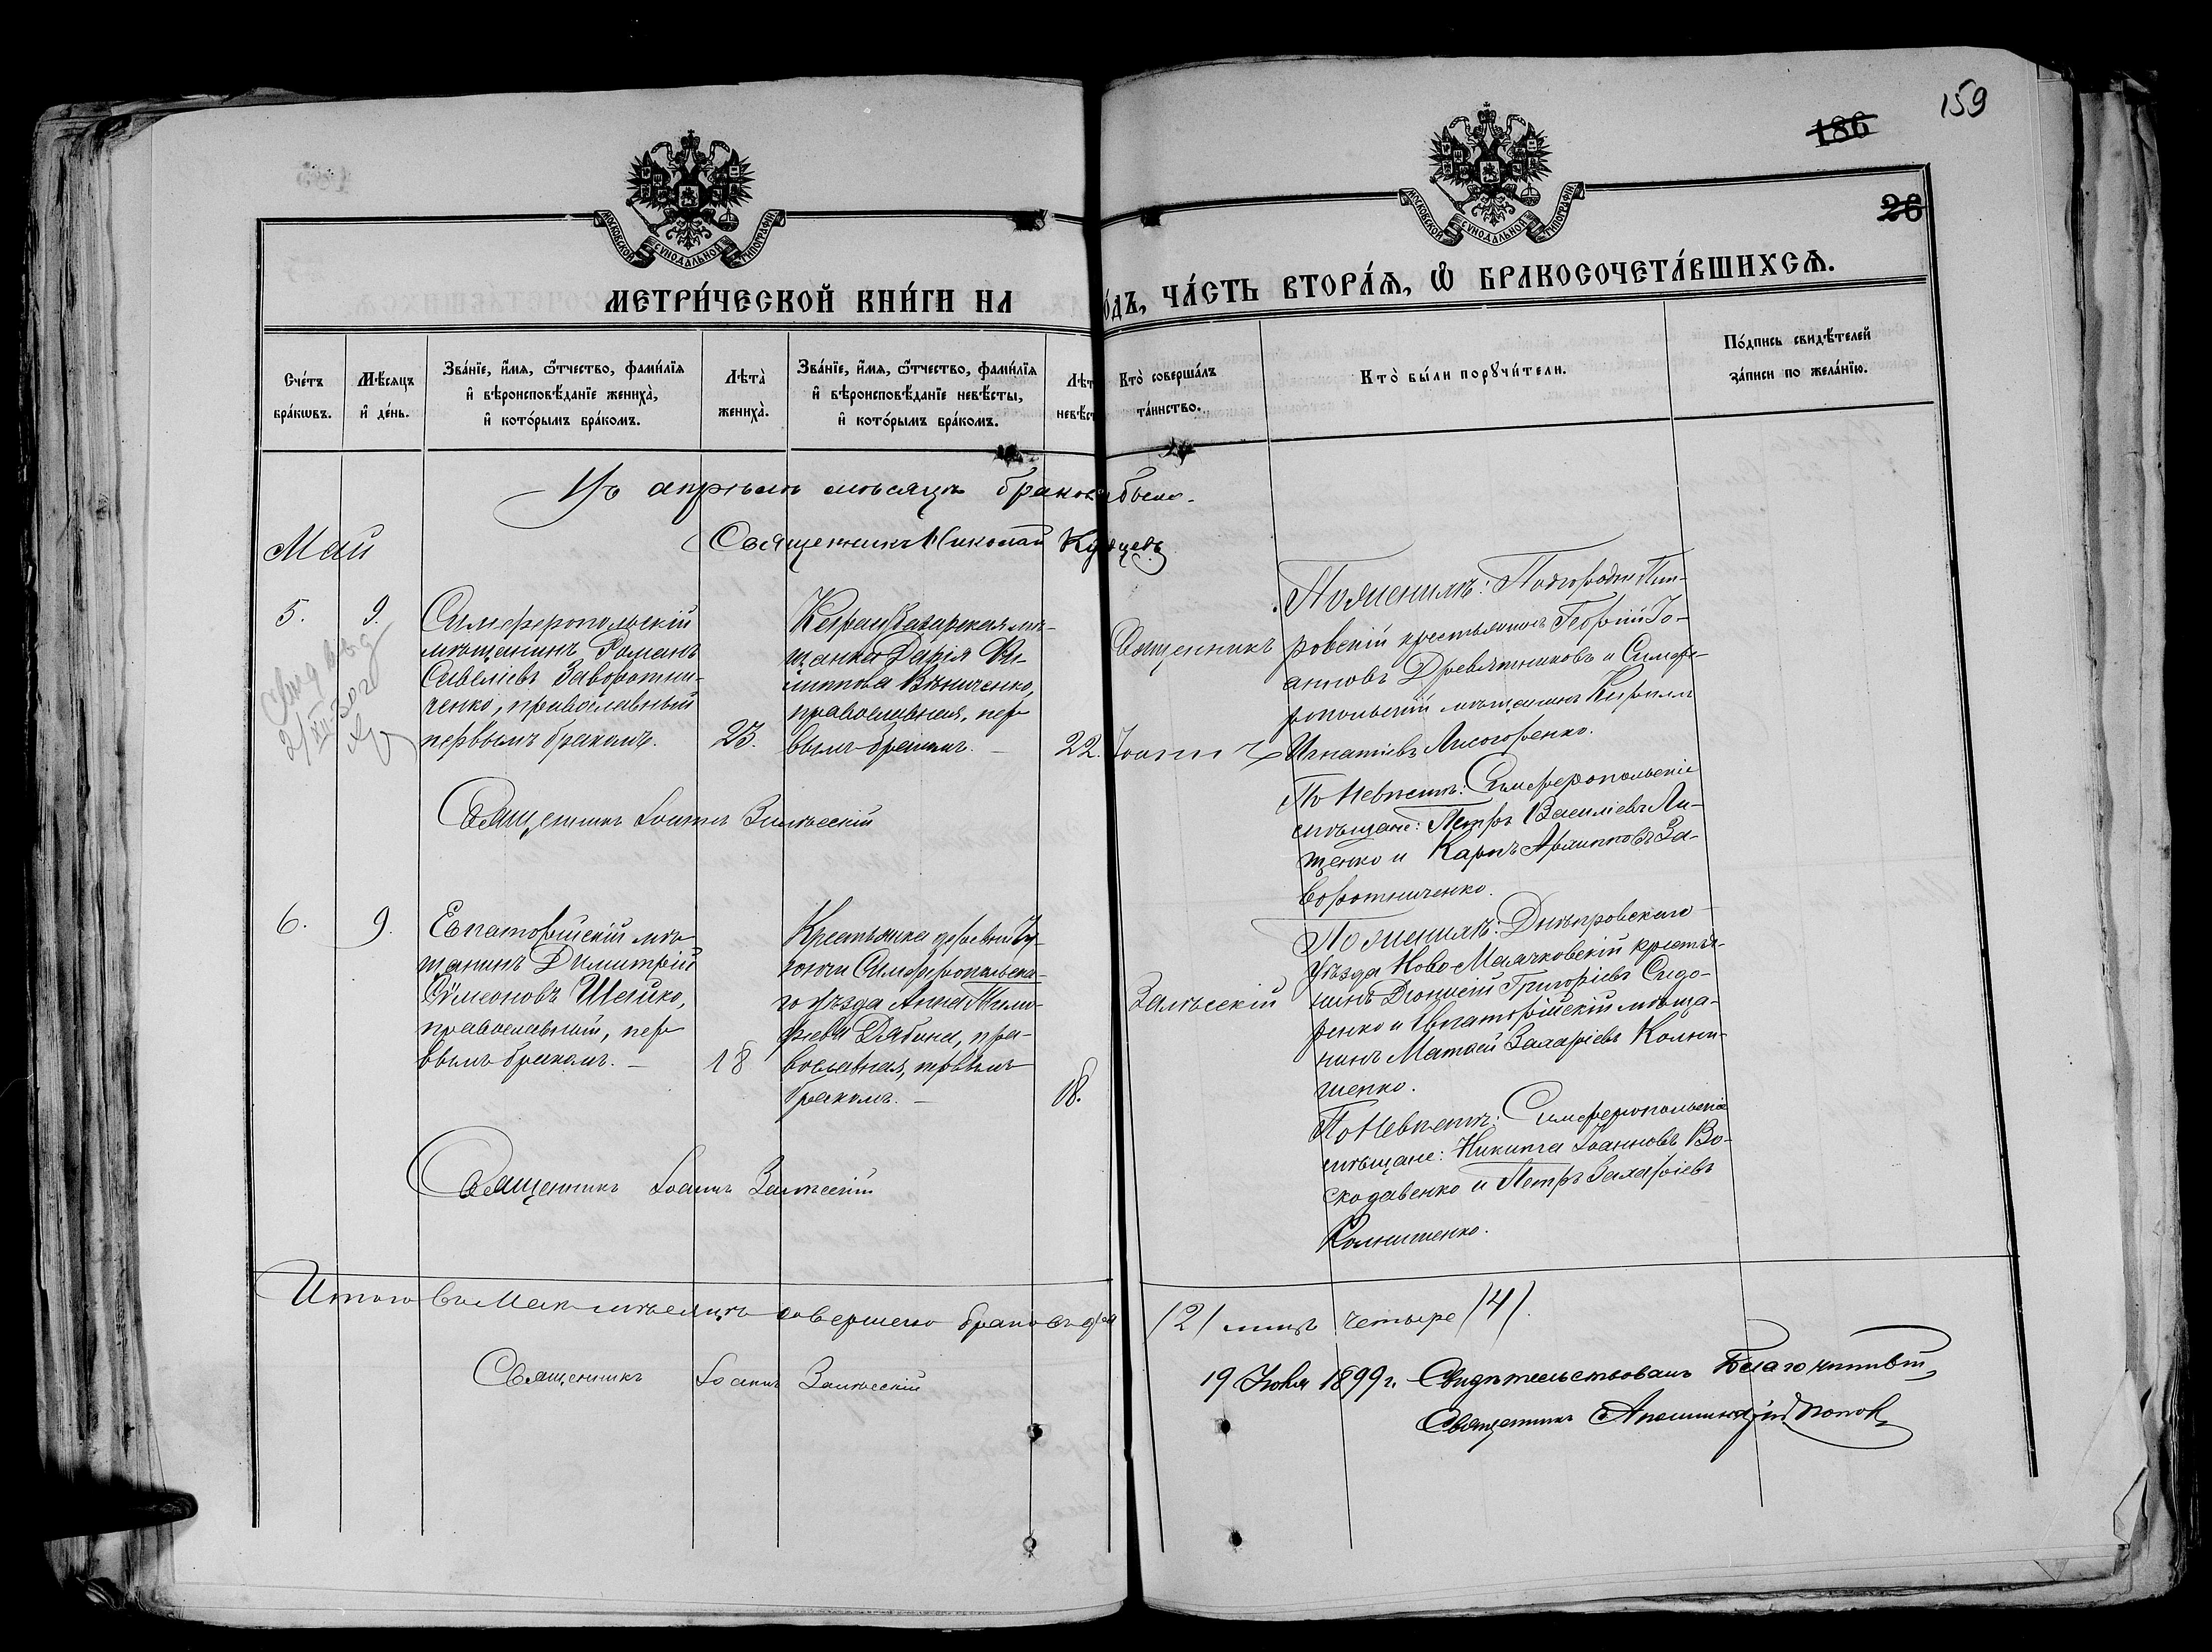 159
186
26
МОСКОВСКОЙ СѴНОДАЛЬНОЙ ТИПОГРАФІИ
МОСКОВСКОЙ СѴНОДАЛЬНОЙ ТИПОГРАФІИ
МЕТРИ́ЧЕСКОЙ КНИ́ГИ НА
О́ДЪ, ЧА́СТЬ ВТОРА́Ѧ, Ѡ҆ БРАКОСОЧЕТА́ВШИХСѦ.
Сче́тъ
бра́кѡвъ.
Мѣ́сяцъ
и҆ де́нь.
Зва́нїе, и҆́мѧ, ѻ҆́тчество, фами́лїѧ
и҆ вѣроисповѣ́данїе жениха̀,
и҆ кото́рымъ бра́комъ.
Лѣта̀
жениха̀.
Зва́нїе, и҆́мѧ, ѻ҆́тчество, фами́лїѧ
и҆ вѣроисповѣ́данїе невѣ́сты,
и҆ кото́рымъ бра́комъ.
Лѣт
невѣст
Кто̀ соверша́лъ
та́инство.
Кто̀ бы́ли порꙋчи́тели.
По́дпись свидѣ́телей
за́писи по жела́нїю.
Въ апрѣлѣ мѣсяцѣ браковъ было
Священникъ Николай
Май
5.
9.
Симферопольскій
мѣщанинъ Романъ
Савеліевъ Заворотни-
ченко, православный
первымъ бракомъ.
23.
мѣ-
щанка Дарія Фи-
липпова
православная, пер
вымъ бракомъ.
22.
Священникъ
Іоаннъ
По женихѣ:
ровскій крестьянинъ Георгій Іо-
анновъ Древятниковъ и Симфе-
ропольскій мѣщанинъ Кириллъ
Игнатіевъ Лисогоренко.
По невѣстѣ: Симферопольскіе
мѣщане: Петръ Василіевъ Ли-
щенко и Карпъ Архипповъ За-
воротниченко.
Священникъ Іоаннъ Залѣсскій
6.
9.
Евпаторійскій мѣ
щанинъ Димитрій
Сѵмеоновъ Шейко,
православный, пер
вымъ бракомъ.
18
Крестьянка деревни
Симферопольска-
го уѣзда Анна Тимо-
фіева Дябина, пра-
вославная, первымъ
бракомъ.
18.
Залѣсскій
По женихѣ: Днѣпровскаго
уѣзда Ново-Маячковскій крестья-
нинъ Діонисій Григоріевъ Сидо-
ренко и Евпаторійскій мѣща-
нинъ Матѳей Захаріевъ Колни-
шенко.
По невѣстѣ: Симферопольскіе
мѣщане: Никита Іоанновъ Во-
скодавенко и Петръ Захаріевъ
Колнишенко.
Священникъ Іоаннъ Залѣсскій
Итого въ Маѣ мѣсяцѣ совершено браковъ два
/2/ лицъ четыре /4/.
Священникъ Іоаннъ Залѣсскій
19 Іюня 1899 г. Свидѣтельствовалъ
Священникъ Попов